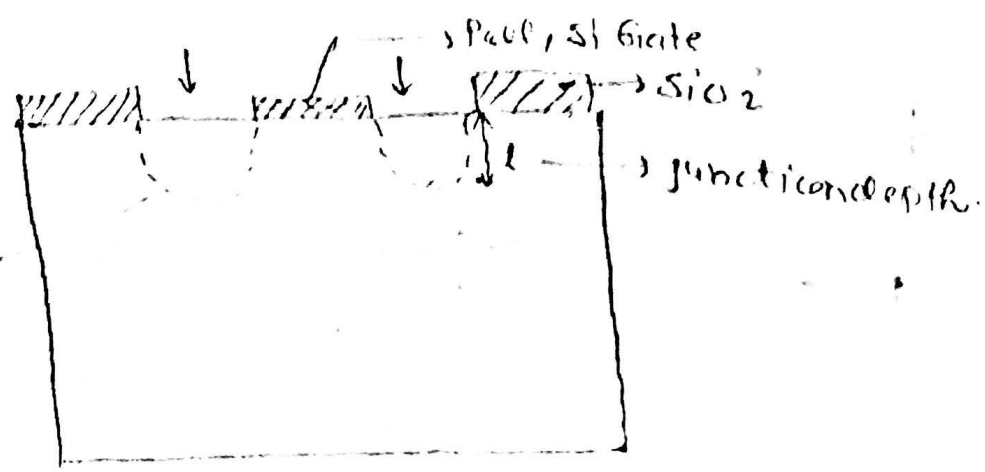 Si Gate
SiO2
l
junction depth.